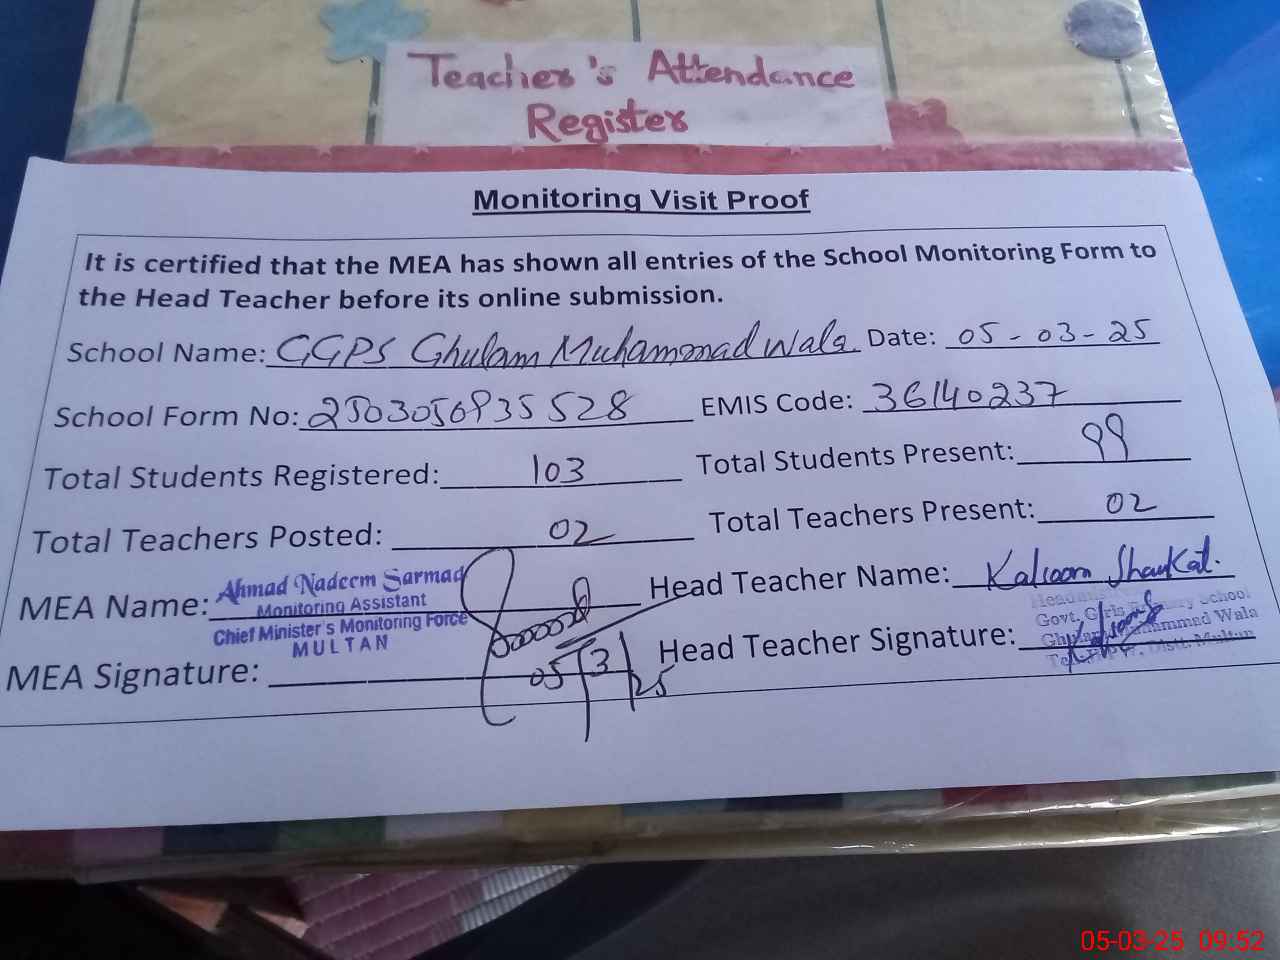 Teacher's Attendance
Register
Monitoring Visit Proof
It is certified that the MEA has shown all entries of the School Monitoring Form to
the Head Teacher before its online submission.
School Name: GGPS Ghulam Muhammad Wala Date: 05-03-25
School Form No: 2503050935528 EMIS Code: 36140237
Total Students Registered: 103 Total Students Present: 99
Total Teachers Posted: 02 Total Teachers Present: 02
MEA Name: Ahmad Nadeem Sarmad Head Teacher Name: Kalsoom Shaukat.
Monitoring Assistant
Chief Minister's Monitoring Force
MULTAN
Govt. Girls Primary School
Ghulam Muhammad Wala
Distt. Multan
MEA Signature: 05/3/25 Head Teacher Signature:
05-03-25 09:52